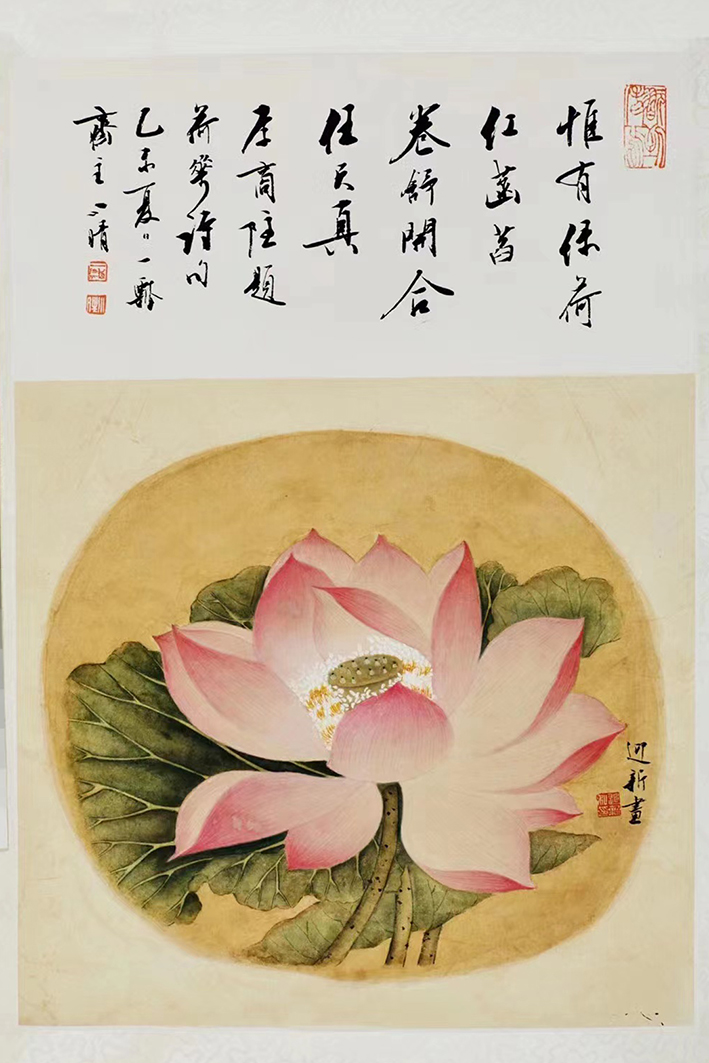 惟有绿荷
红菡萏
卷舒開合
任天真
李商隐題
荷華诗句
乙未夏日一瓢
齋主一晴
迎新畫